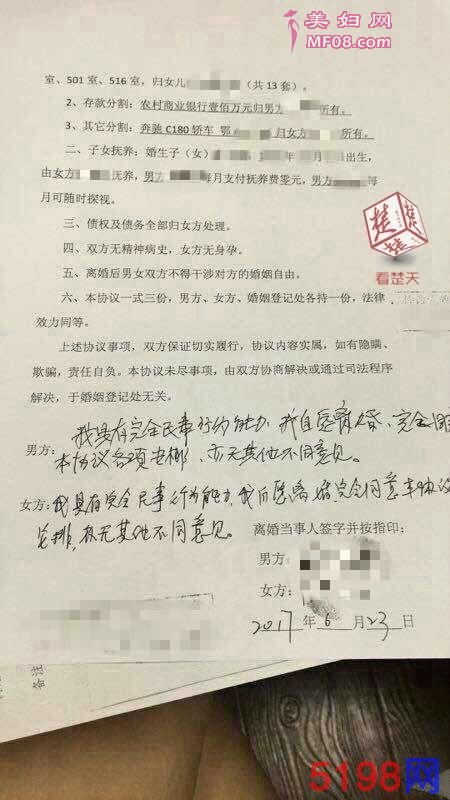 美妇网
MF08.com
室、501 室、516 室，归女儿（共 13 套）。
2、存款分割：农村商业银行壹佰万元归男方所有。
3、其它分割：奔驰 C180 轿车 鄂 归女方所有。
二、子女抚养：婚生子（女） 年 月 日出生，
由女方抚养，男方每月支付抚养费零元，男方每
月可随时探视。
楚
楚
看楚天
三、债权及债务全部归女方处理。
四、双方无精神病史，女方无身孕。
五、离婚后男女双方不得干涉对方的婚姻自由。
六、本协议一式三份，男方、女方、婚姻登记处各持一份，法律
效力同等。
上述协议事项，双方保证切实履行，协议内容实属，如有隐瞒、
欺骗，责任自负。本协议未尽事项，由双方协商解决或通过司法程序
解决，于婚姻登记处无关。
我具有完全民事行为能力，我自愿离婚，完全同
男方：本协议各项安排，亦无其他不同意见。
女方：我具有完全民事行为能力，我自愿离婚完全同意本协议
安排，亦无其他不同意见。
离婚当事人签字并按指印：
男方：
女方：
2017 年 6 月 23 日
备注
5198网